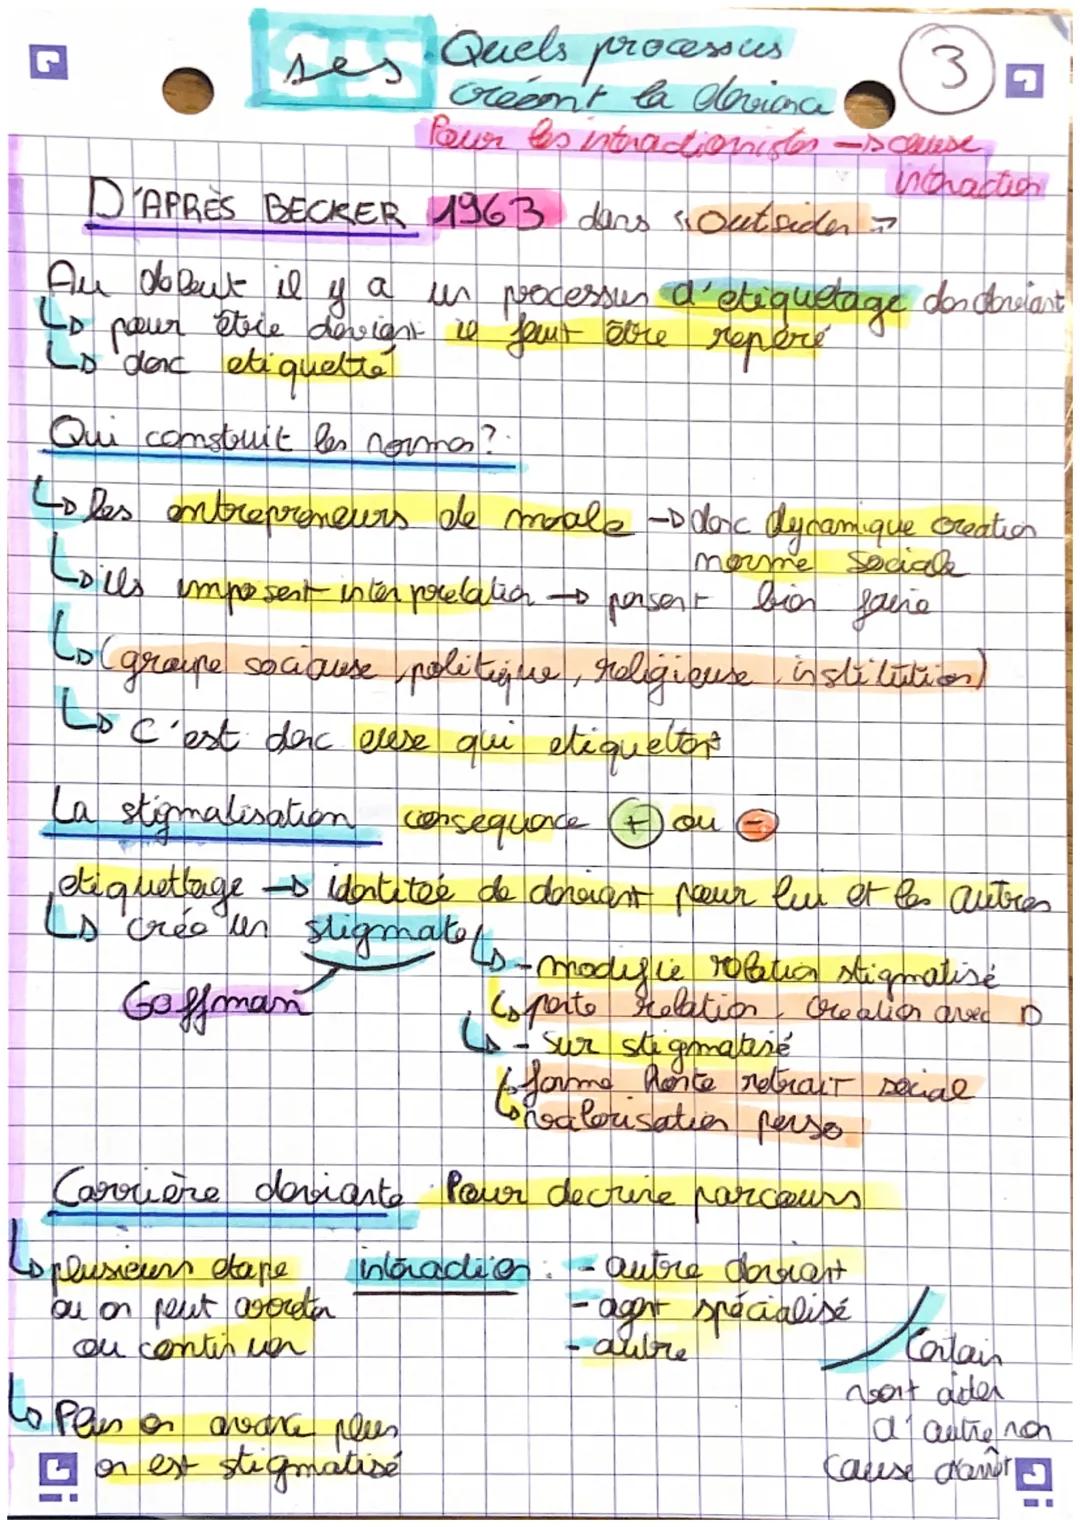 ses Quels processus
créent la deviance
3
Pour les intractionistes → cause
intraction
D'APRÈS BECKER 1963 dans "Outsider"
Au debut il y a un processus d'etiquetage des deviant
↳ pour être deviant il faut être repéré
↳ donc etiquetté
Qui construit les normes?
↳ les entrepreneurs de morale → donc dynamique creation
norme sociale
↳ ils imposent interpretation → pensent bien faire
↳ (groupe sociause, politique, religieuse, institution)
↳ C'est donc euse qui etiquettent
La stigmatisation consequence + ou -
etiquettage → identitée de deviant pour lui et les autres
↳ crée un stigmate
Goffman
↳ - modifie relation stigmatisé
↳ perte relation, creation avec D
↳ - sur stigmatisé
↳ forme honte retrait social
↳ valorisation perso
Carrière deviante Pour decrire parcours
↳ plusieurs etape
ou on peut arreter
ou continuer
intéraction : - autre deviant
- agent spécialisé
- autre
Certain
vont aider
d'autre non
cause d'arrêt
↳ Plus on avance plus
on est stigmatisé